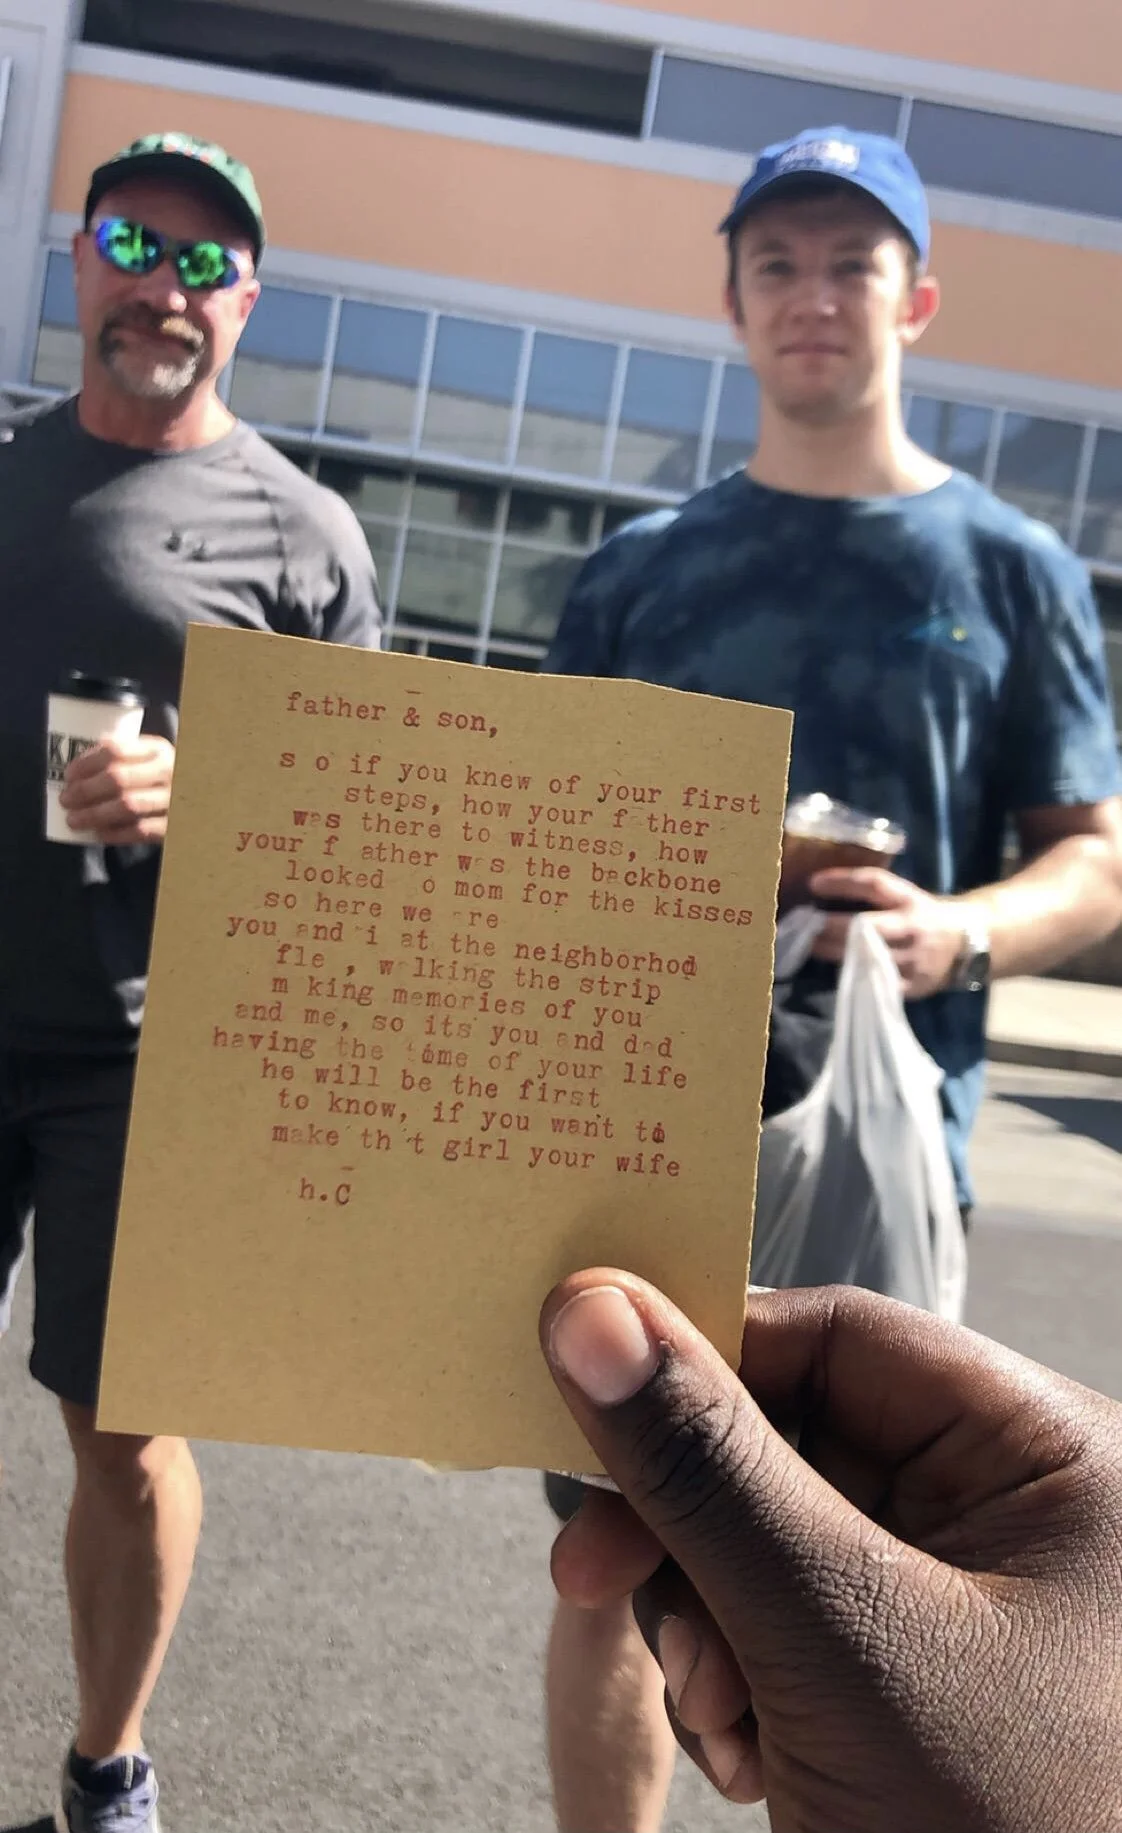 father & son,
s o if you knew of your first
steps, how your f ther
was there to witness, how
your f ather w s the backbone
looked o mom for the kisses
so here we re
you and i at the neighborhod
fle , w lking the strip
m king memories of you
and me, so its you and dad
having the time of your life
he will be the first
to know, if you want to
make th t girl your wife
h.C